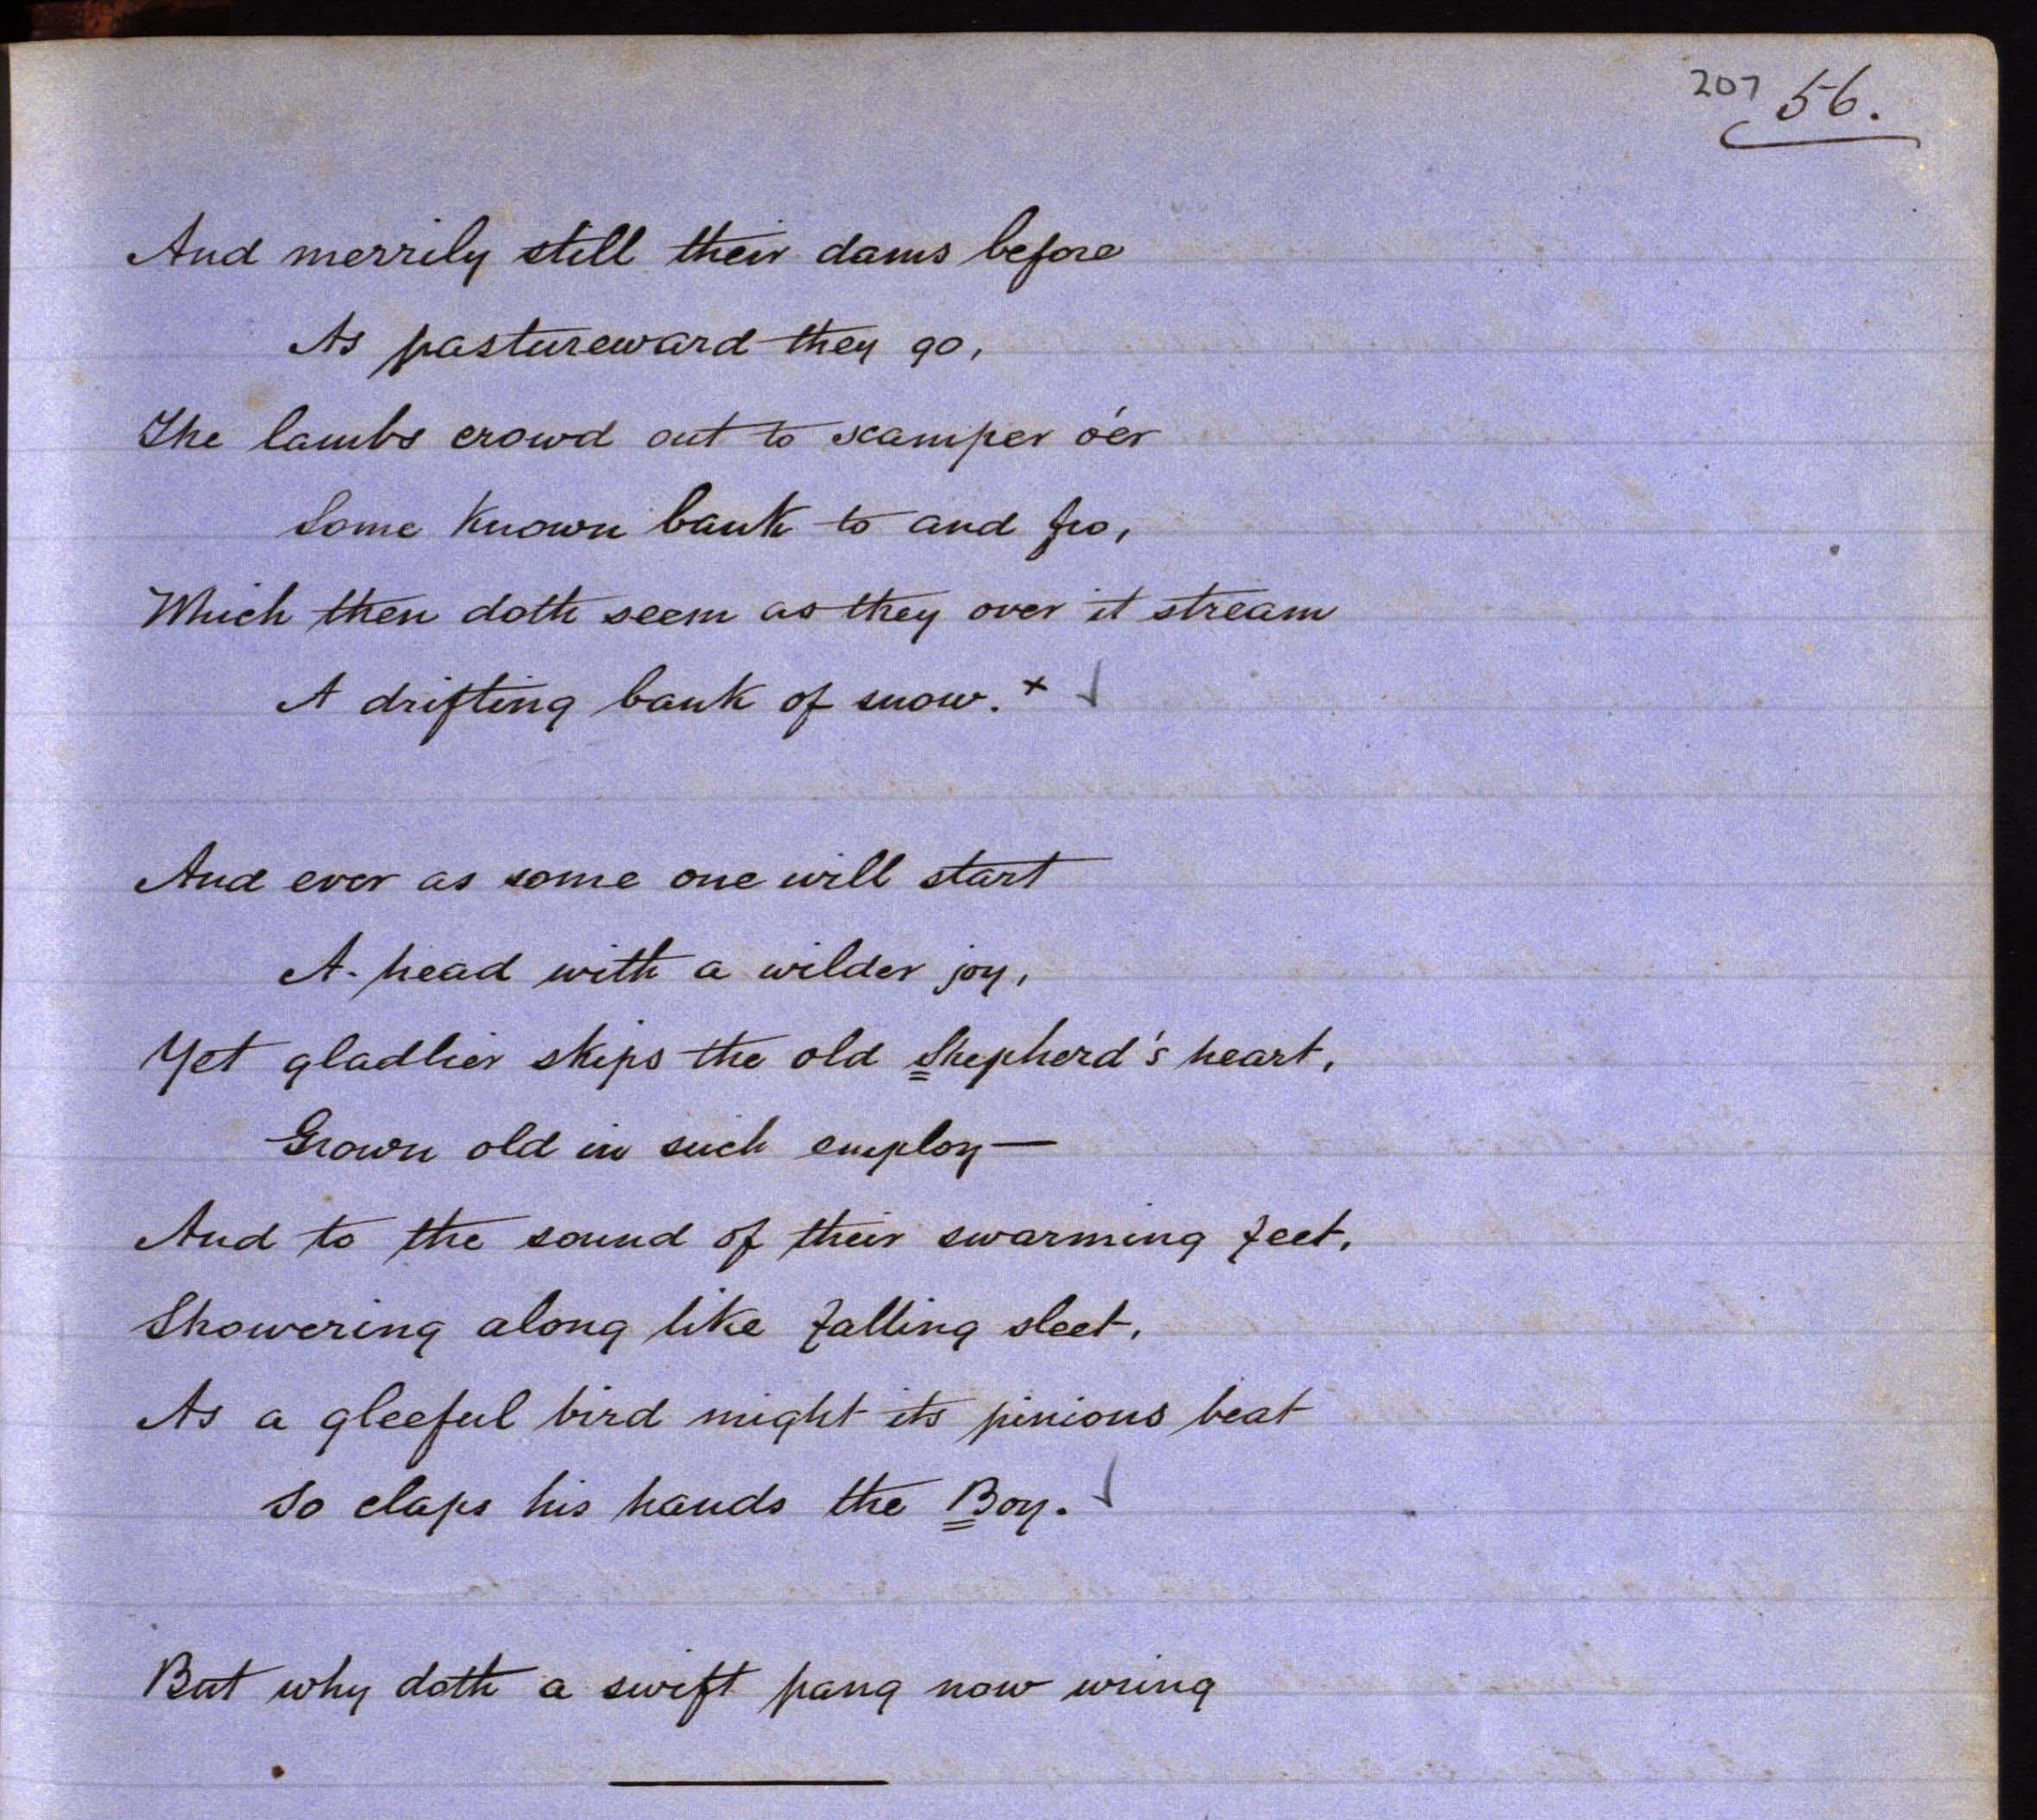 207 56.
And merrily still their dams before
As pastureward they go,
The lambs crowd out to scamper o'er
Some known bank to and fro,
Which then doth seem as they over it stream
A drifting bank of snow. +
And ever as some one will start
A-head with a wilder joy,
Yet gladlier skips the old Shepherd's heart,
Grown old in such employ—
And to the sound of their swarming feet,
Showering along like falling sleet,
As a gleeful bird might its pinions beat
So claps his hands the Boy.
But why doth a swift pang now wring